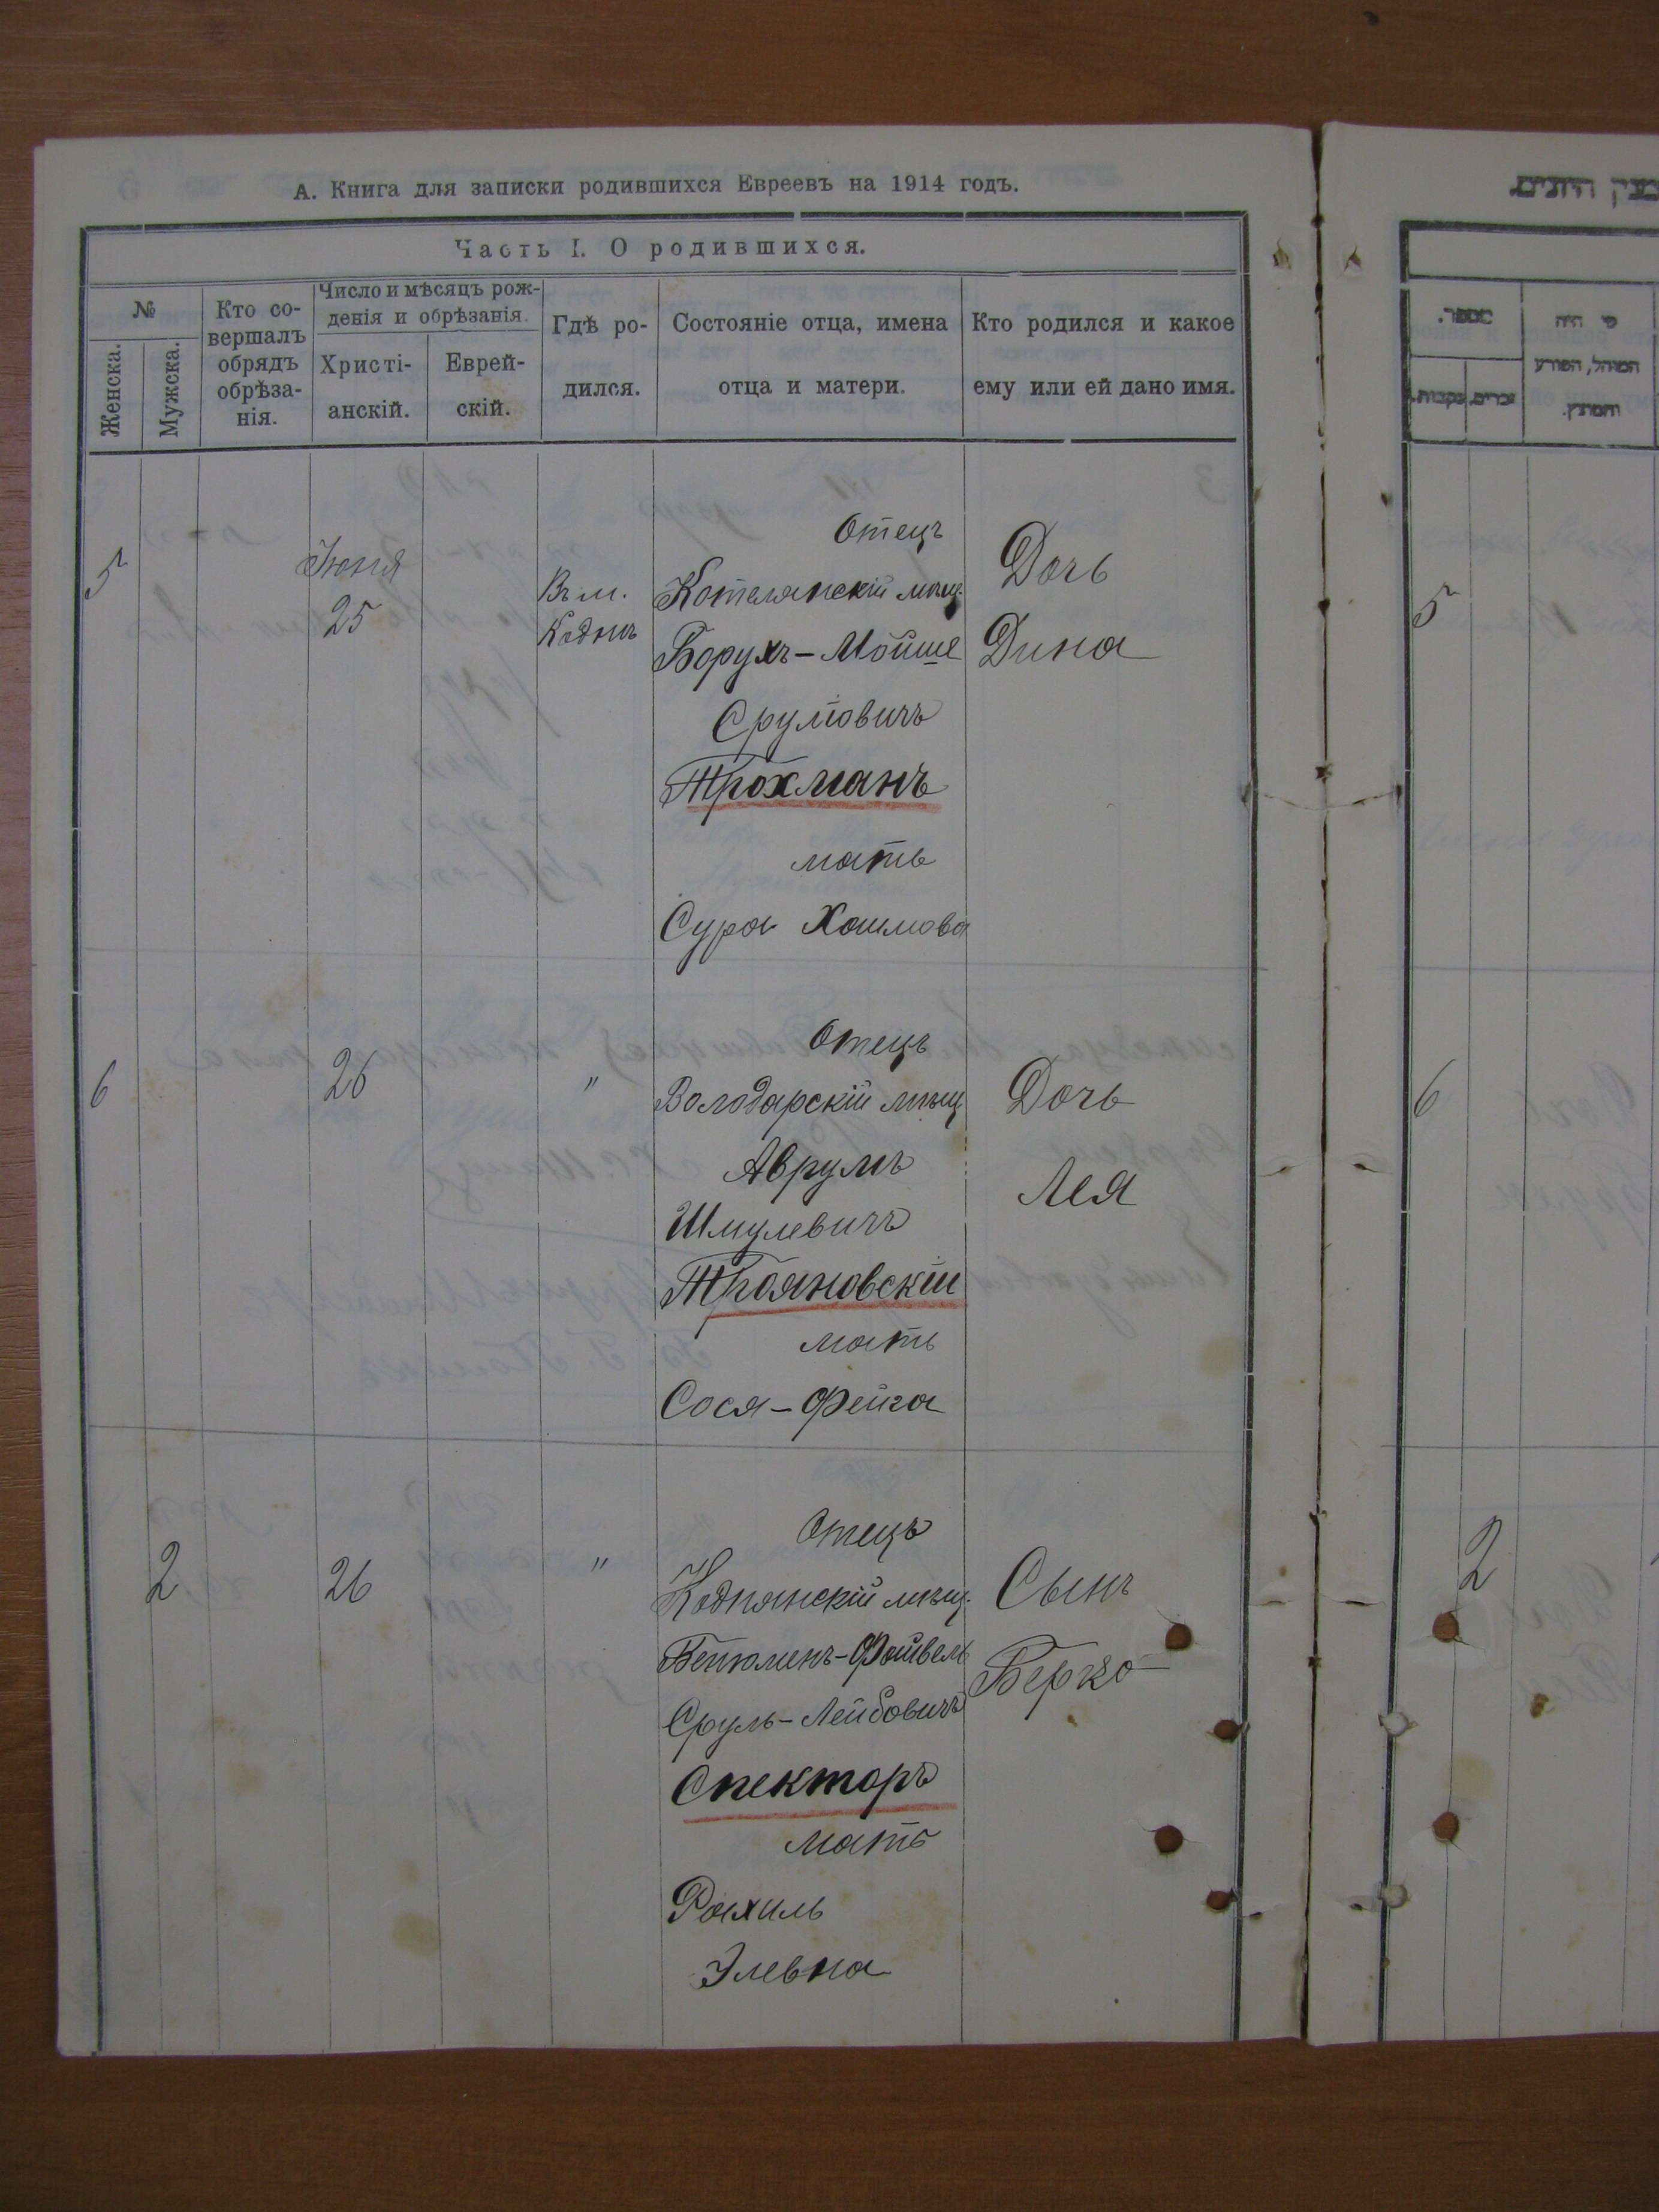 А. Книга для записки родившихся Евреевъ на 1914 годъ.
Часть I. О родившихся.
№
Женска.
Мужска.
Кто со-
вершалъ
обрядъ
обрѣза-
нія.
Число и мѣсяцъ рож-
денія и обрѣзанія.
Христі-
анскій.
Еврей-
скій.
Гдѣ ро-
дился.
Состояніе отца, имена
отца и матери.
Кто родился и какое
ему или ей дано имя.
5
Іюня
25
Въ м.
Кодню
Отецъ
Котелянскій мѣщ.
Борухъ-Мойше
Срулiовичъ
Трохманъ
мать
Сура Хаимова
Дочь
Дина
6
26
"
Отецъ
Володарскій мѣщ
Аврумъ
Шмулевичъ
Трояновскій
мать
Сося-Фейга
Дочь
Лея
2
26
"
Отецъ
Коднянскій мѣщ.
Срулъ-Лейбовичъ
Спекторъ
мать
Рахиль
Элевна
Сынъ
Берко
מספר.
זכרים.
נקבות.
מי היה
המוהל, הפורע
והמוצץ.
5
6
2